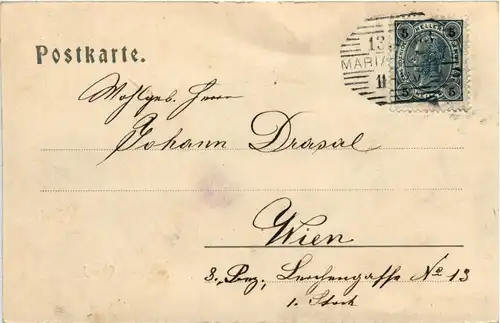 Postkarte.
5 HELLER 5
13
MARIA
11
5 5
Wohlgeb. Herrn
Johann Drasal
Wien
3. Bez., Lerchengasse No 13
1. Stock